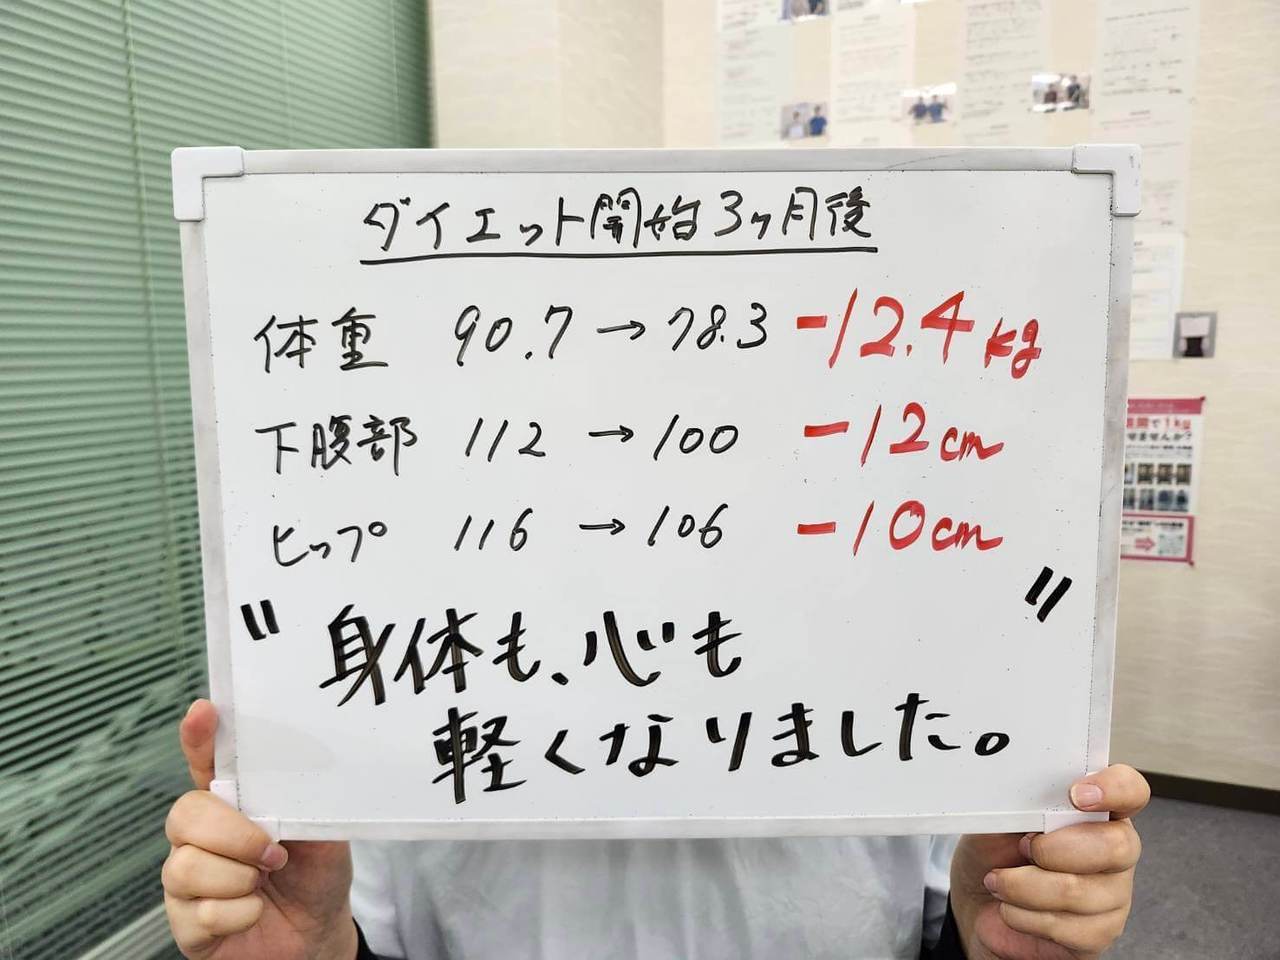 ダイエット開始3ヶ月後
体重 90.7 → 78.3 -12.4kg
下腹部 112 → 100 -12cm
ヒップ 116 → 106 -10cm
"身体も、心も
軽くなりました。"
間で1kg
せませんか?